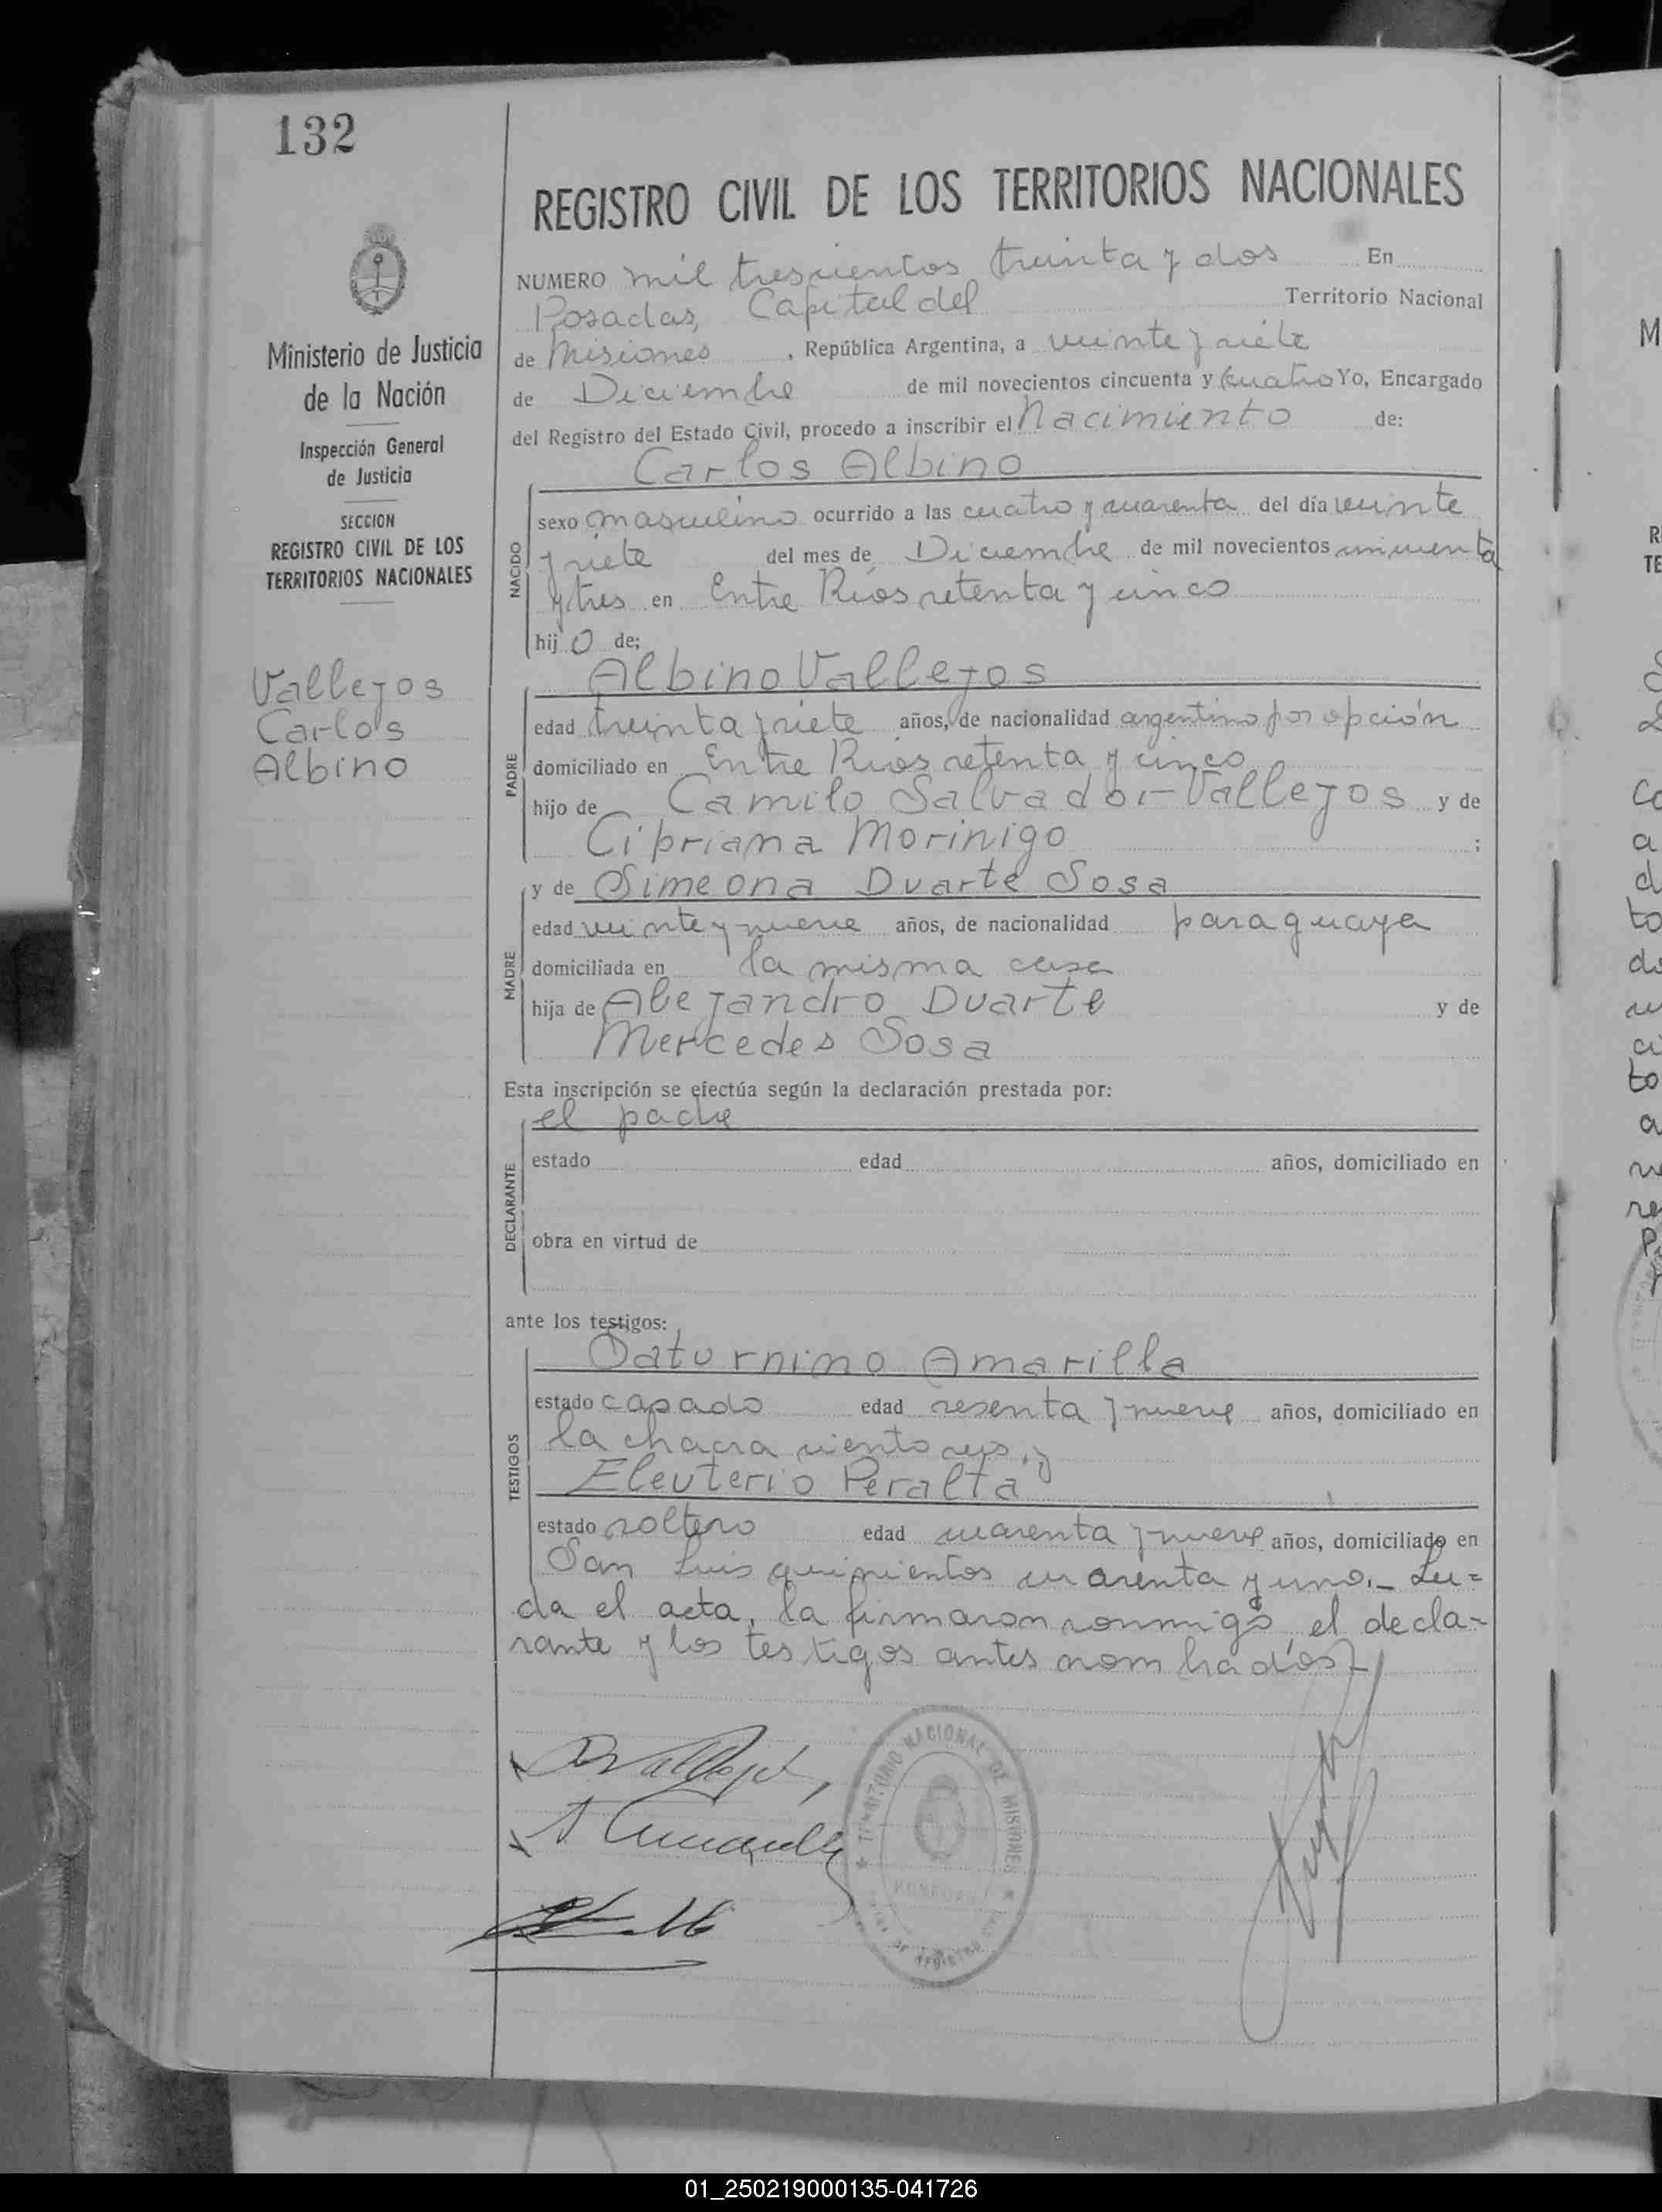 132
REGISTRO CIVIL DE LOS TERRITORIOS NACIONALES
Ministerio de Justicia
de la Nación
Inspección General
de Justicia
SECCION
REGISTRO CIVIL DE LOS
TERRITORIOS NACIONALES
Vallejos
Carlos
Albino
NUMERO mil trescientos treinta y dos En
Posadas, Capital del Territorio Nacional
de Misiones, República Argentina, a veinte y siete
de Diciembre de mil novecientos cincuenta y cuatro Yo, Encargado
del Registro del Estado Civil, procedo a inscribir el Nacimiento de:
Carlos Albino
NACIDO
sexo masculino ocurrido a las cuatro y cuarenta del día veinte
y siete del mes de Diciembre de mil novecientos cincuenta
y tres en Entre Ríos setenta y cinco
hijo de:
Albino Vallejos
PADRE
edad treinta y siete años, de nacionalidad argentino por opción
domiciliado en Entre Ríos setenta y cinco
hijo de Camilo Salvador Vallejos y de
Cipriana Morinigo ;
MADRE
y de Simeona Duarte Sosa
edad veinte y nueve años, de nacionalidad paraguaya
domiciliada en la misma casa
hija de Alejandro Duarte y de
Mercedes Sosa
Esta inscripción se efectúa según la declaración prestada por:
el padre
DECLARANTE
estado edad años, domiciliado en
obra en virtud de
ante los testigos:
Saturnino Amarilla
TESTIGOS
estado casado edad sesenta y nueve años, domiciliado en
la chacra ciento seis y
Eleuterio Peralta
estado soltero edad cuarenta y nueve años, domiciliado en
San Luis quinientos cuarenta y uno.- Leí=
da el acta, la firmaron conmigo, el decla-
rante y los testigos antes nombrados.-
TERRITORIO NACIONAL DE MISIONES
01_250219000135-041726